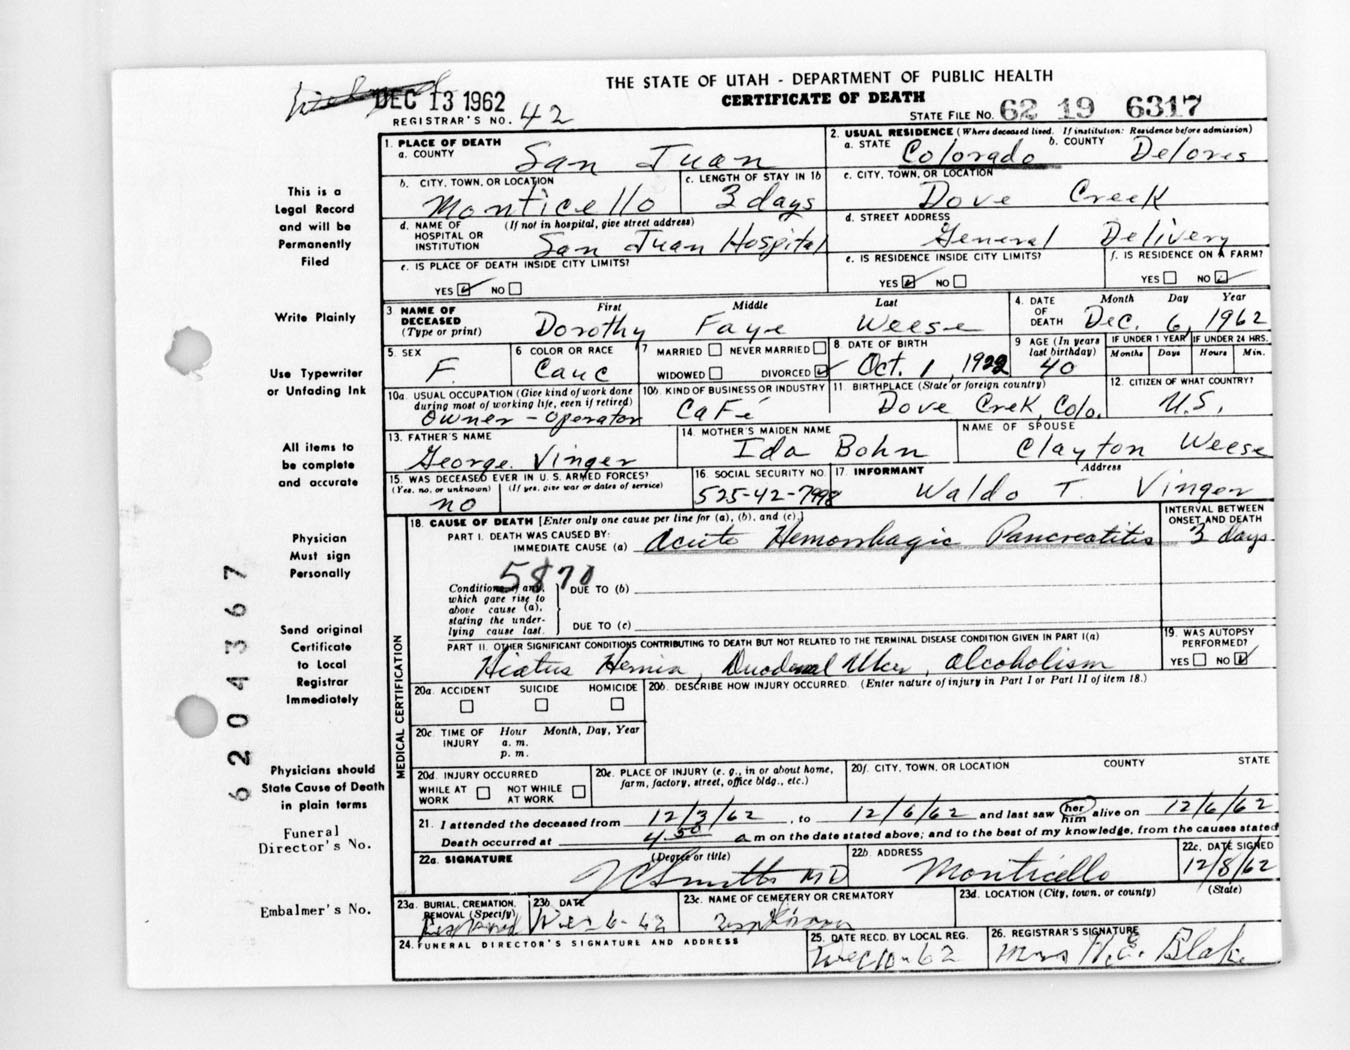 THE STATE OF UTAH - DEPARTMENT OF PUBLIC HEALTH
DEC 13 1962
CERTIFICATE OF DEATH
REGISTRAR'S NO. 42
STATE FILE NO. 62 19 6317
1. PLACE OF DEATH
a. COUNTY San Juan
2. USUAL RESIDENCE (Where deceased lived. If institution: Residence before admission)
a. STATE Colorado b. COUNTY Delores
b. CITY, TOWN, OR LOCATION Monticello
c. LENGTH OF STAY IN 1b 3 days
c. CITY, TOWN, OR LOCATION Dove Creek
d. NAME OF HOSPITAL OR INSTITUTION (If not in hospital, give street address) San Juan Hospital
d. STREET ADDRESS General Delivery
e. IS PLACE OF DEATH INSIDE CITY LIMITS?
YES NO
e. IS RESIDENCE INSIDE CITY LIMITS?
YES NO
f. IS RESIDENCE ON A FARM?
YES NO
3 NAME OF DECEASED (Type or print)
First Middle Last
Dorothy Faye Weese
4. DATE OF DEATH Month Day Year
Dec. 6, 1962
5. SEX F.
6 COLOR OR RACE Cauc
7 MARRIED NEVER MARRIED
WIDOWED DIVORCED
8 DATE OF BIRTH Oct. 1, 1922
9 AGE (In years last birthday) 40
IF UNDER 1 YEAR Months Days
IF UNDER 24 HRS. Hours Min.
10a. USUAL OCCUPATION (Give kind of work done during most of working life, even if retired) Owner - Operator
10b. KIND OF BUSINESS OR INDUSTRY Café
11. BIRTHPLACE (State or foreign country) Dove Crek, Colo.
12. CITIZEN OF WHAT COUNTRY? U.S.
13. FATHER'S NAME George Vinger
14. MOTHER'S MAIDEN NAME Ida Bohn
NAME OF SPOUSE Clayton Weese
15. WAS DECEASED EVER IN U.S. ARMED FORCES?
(Yes, no, or unknown) (If yes, give war or dates of service)
no
16. SOCIAL SECURITY NO. 525-42-7998
17. INFORMANT Address
Waldo T. Vinger
18. CAUSE OF DEATH [Enter only one cause per line for (a), (b), and (c).]
INTERVAL BETWEEN ONSET AND DEATH
PART I. DEATH WAS CAUSED BY:
IMMEDIATE CAUSE (a) Acute Hemorrhagic Pancreatitis 3 days
5870
Conditions, if any, which gave rise to above cause (a), stating the underlying cause last.
DUE TO (b)
DUE TO (c)
PART II. OTHER SIGNIFICANT CONDITIONS CONTRIBUTING TO DEATH BUT NOT RELATED TO THE TERMINAL DISEASE CONDITION GIVEN IN PART I(a)
Hiatus Hernia, Duodenal Ulcer, alcoholism
19. WAS AUTOPSY PERFORMED?
YES NO
MEDICAL CERTIFICATION
20a. ACCIDENT SUICIDE HOMICIDE
20b. DESCRIBE HOW INJURY OCCURRED. (Enter nature of injury in Part I or Part II of item 18.)
20c. TIME OF INJURY Hour Month, Day, Year
a. m.
p. m.
20d. INJURY OCCURRED
WHILE AT WORK NOT WHILE AT WORK
20e. PLACE OF INJURY (e. g., in or about home, farm, factory, street, office bldg., etc.)
20f. CITY, TOWN, OR LOCATION COUNTY STATE
21. I attended the deceased from 12/3/62, to 12/6/62 and last saw her him alive on 12/6/62
Death occurred at 4:50 a m on the date stated above; and to the best of my knowledge, from the causes stated
22a. SIGNATURE (Degree or title)
J C Smith MD
22b. ADDRESS Monticello
22c. DATE SIGNED 12/8/62
23a. BURIAL, CREMATION, REMOVAL (Specify)
23b. DATE Dec 6-62
23c. NAME OF CEMETERY OR CREMATORY
23d. LOCATION (City, town, or county) (State)
24. FUNERAL DIRECTOR'S SIGNATURE AND ADDRESS
25. DATE RECD. BY LOCAL REG. Dec 10-62
26. REGISTRAR'S SIGNATURE Mrs H.E. Blake
This is a
Legal Record
and will be
Permanently
Filed
Write Plainly
Use Typewriter
or Unfading Ink
All items to
be complete
and accurate
Physician
Must sign
Personally
Send original
Certificate
to Local
Registrar
Immediately
Physicians should
State Cause of Death
in plain terms
Funeral
Director's No.
Embalmer's No.
6204367